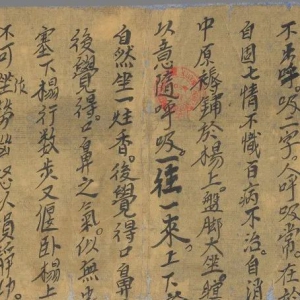 呼。吸二字。人呼吸常在於
自因七情不懺百病不治。自消
中原褥鋪於榻上。盤脚大坐。瞠
以意隨呼吸。一往一來。上下於
自然坐一炷香。後覺得口鼻
後覺得口鼻之氣。似無
塞下榻行数步又偃卧榻上
不可坐勞